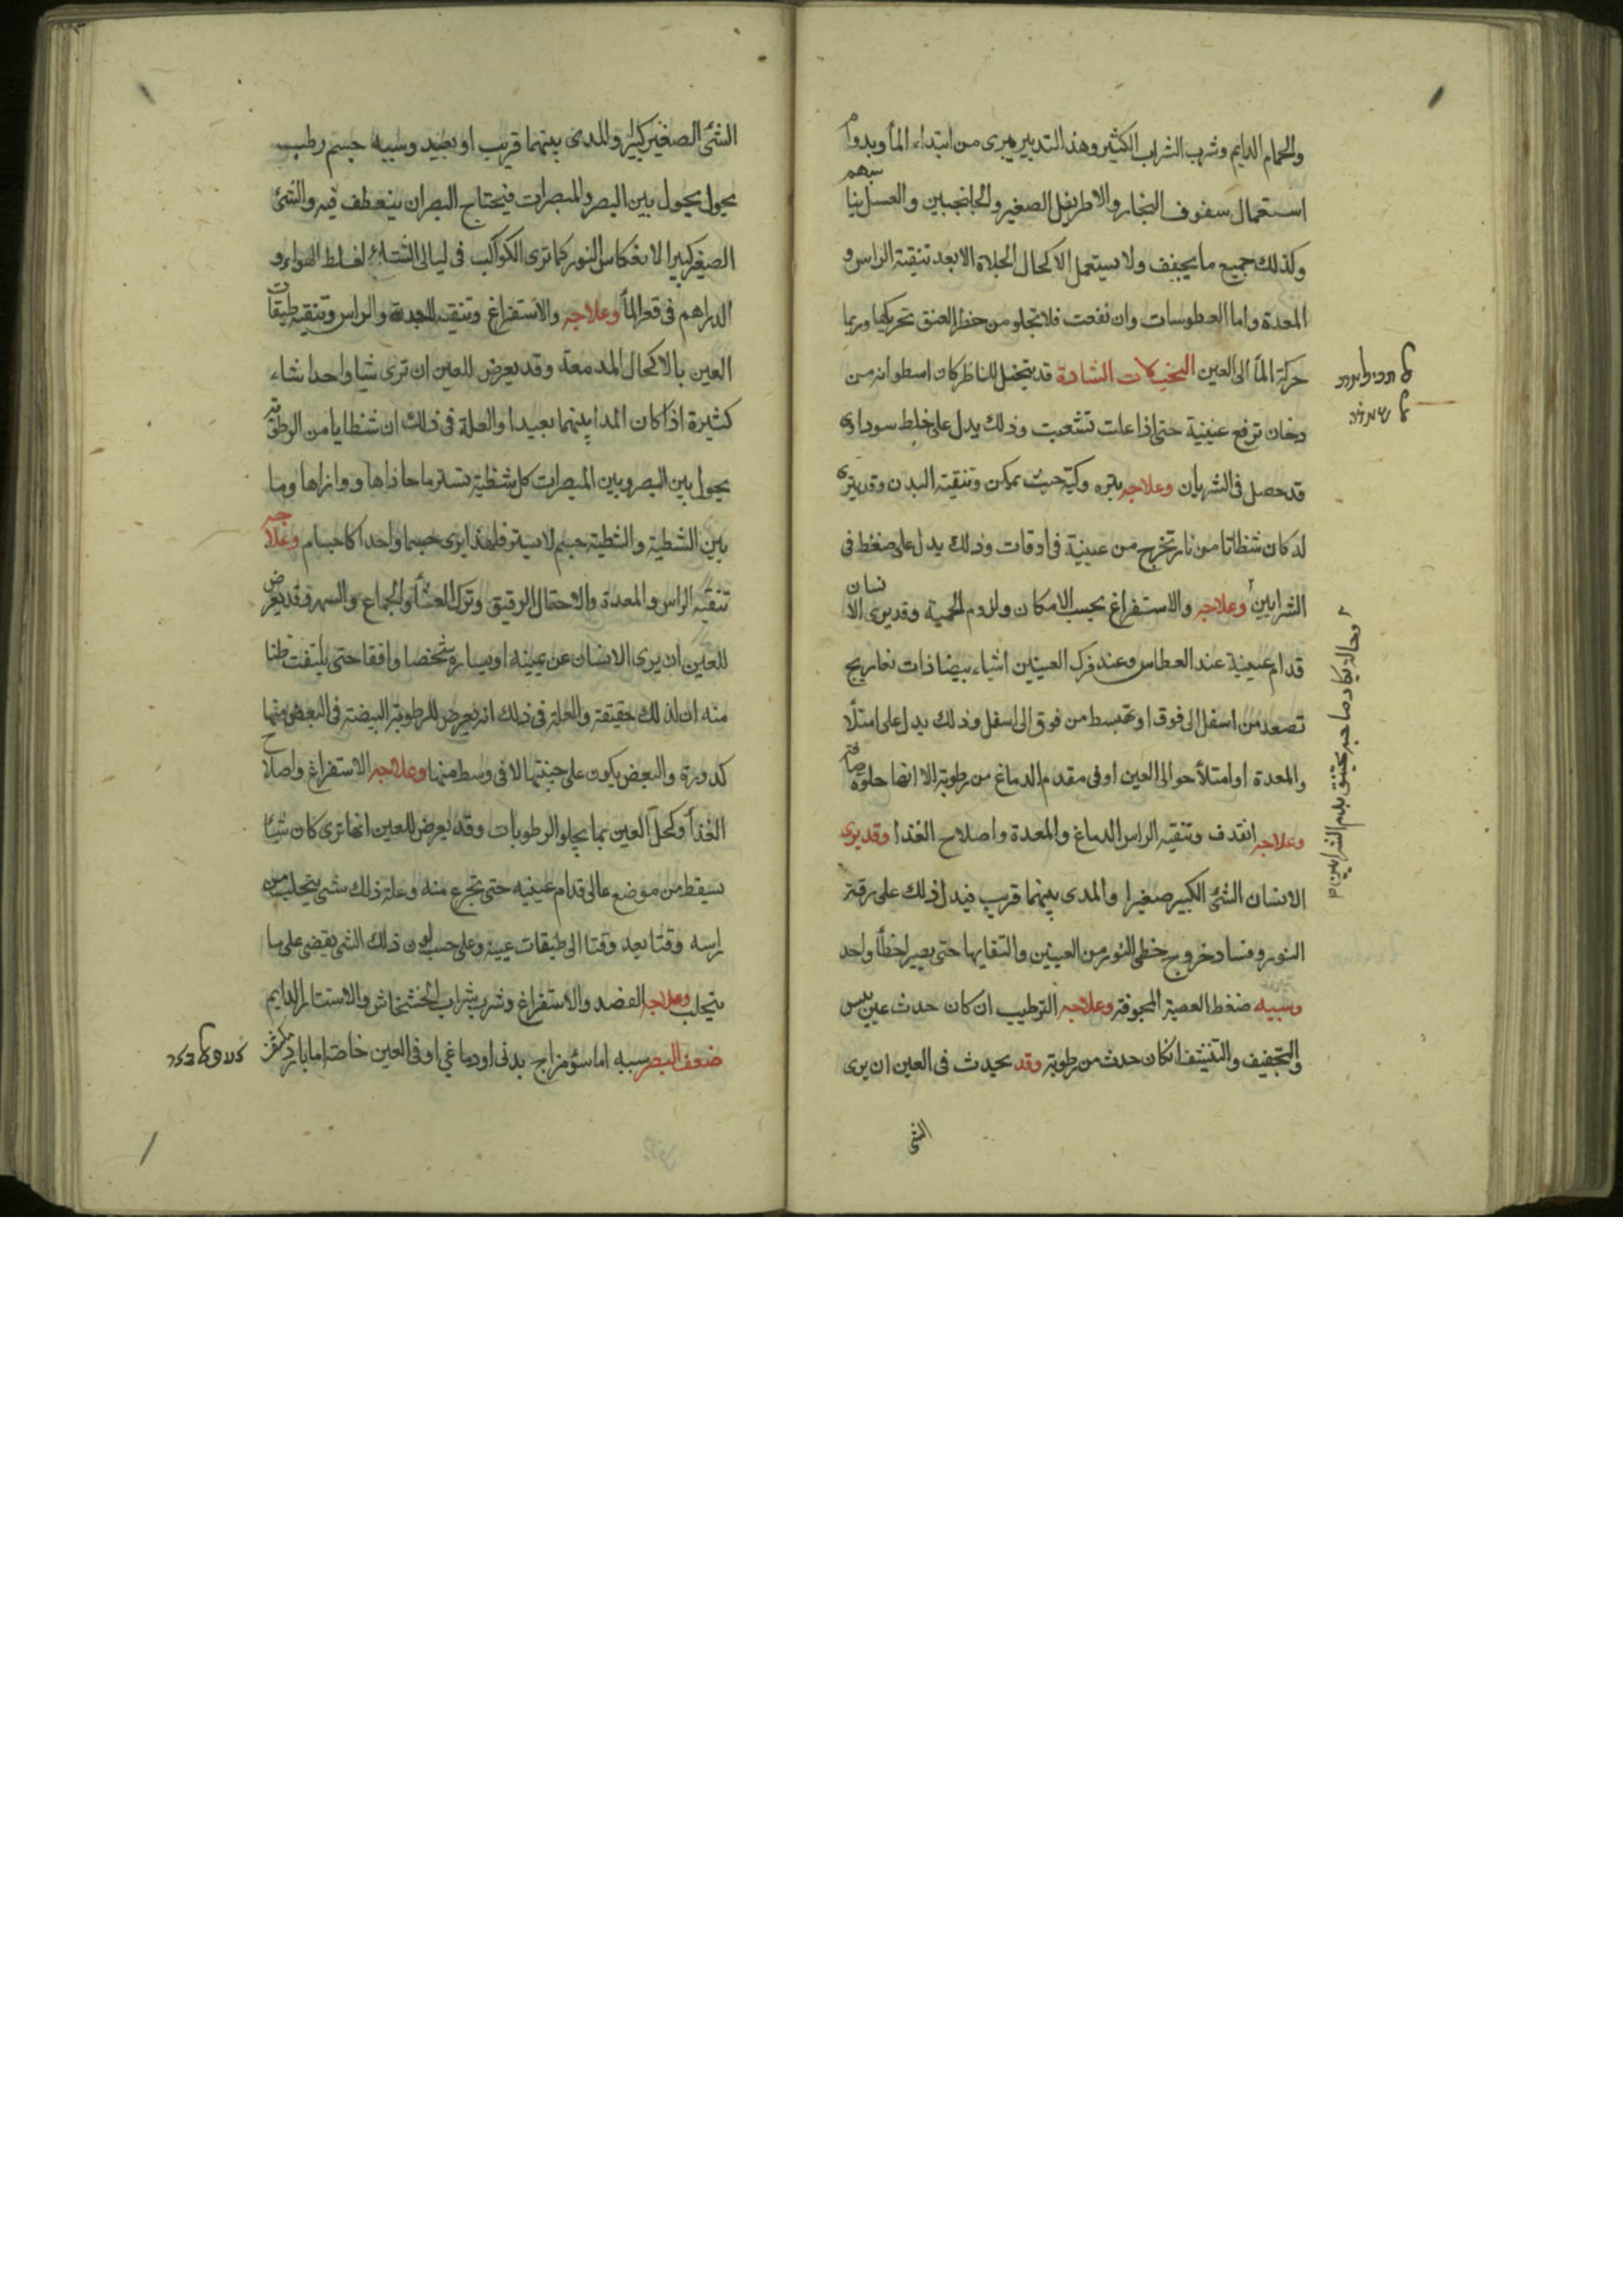 والحمام الدايم وشرب الشراب الكثير وهذا التدبير يبرى من ابتداء الماٴ وبدوام
استعمال سفوف البخار والاطريفل الصغير والجلنجبين والعسل
وكذلك جميع ما يجفف ولا يستعمل الاكحال الجلاة الا بعد تنقية الراس و
المعدة واما العطوسات وان نفعت فلا تخلو من خطر العنق تحريكها وربما
حركة الماٴ الى العين التخيلات الشادة قد يتخيل للناظر كان اسطوانه من
دخان ترفع عينية حتى اذا علت تشعبت وذلك يدل على خلط سوداوى
قد حصل فى الشريان وعلاجه بتره وكيه حيث يمكن وتنقيته البدن وقد يترى
له كان شظاتا من نار تخرج من عينية فى اوقات وذلك يدل على ضغط فى
الشرايين وعلاجه والاستفراغ بحسب الامكان ولزوم الحمية وقد يرى الانسان
قدام عينية عند العطاس وعند فرك العينين اشياء بيضا ذات تعاريج
تصعد من اسفل الى فوق او تهبسط من فوق الى اسفل وذلك يدل على امتلٔا
والمعدة او امتلأ حوالى العين او فى مقدم الدماغ من رطوبة الا انها حلوة
وعلاجه انقدف وتنقيه الراس الدماغ والمعدة واصلاح الغذا وقد يرى
الانسان الشئ الكبير صغيرا والمدى بينهما قريب فيدل ذلك على رقة
النور وفساد خروج خطى النور من العينين والتقايها حتى يصيرا خطأ واحد
وسببه ضغط العصبة المجوفة وعلاجه الترطيب ان كان حدث عن يبس
والتجفيف والتنشف انكان حدث من رطوبة وقد يحدث فى العين ان يرى
الشى
وحاله يكاد صاحبه يختنق بدم الشرايين
الشئ الصغير كبيرا والمدى بينهما قريب او بعيد وسببه جسم رطب
يحول يحول بين البصر والمبصرات فيحتاج البصر ان ينعطف فيه والشئ
الصغير كبيرا لانعكاس النور كما ترى الكواكب فى ليالى الشتاء لغلط الهواء و
الدراهم فى قعر الماٴ وعلاجه والاستفراغ وتنقيه المعدة والراس وتنقيه طبقات
العين بالاكحال المدمعة وقد يعرض للعين ان ترى شيا واحدا شاء
كثيرة اذا كان المدا بينهما بعيدا والعلة فى ذلك ان شظايا من الرطوبة
يحول بين البصر وبين المبصرات كل شظية تستر ما حاذاها ووازاها وما
بين الشظية والشظية جسم لا يستر فلهذا يرى جسما واحدا كاجسام وعلاجه
تنقيه الراس والمعدة والاحتقال الرقيق وترك العشاٴ والجماع والسهر وقد يعرض
للعين ان يرى الانسان عن يمينه او يساره شخصا واقفا حتى يلتفت ظنا
منه ان لذلك حقيقة والعلة فى ذلك انه يعرض للرطوبة البيضة فى البعض منها
كدورة والبعض يكون على جنبتها لا فى وسط منها وعلاجه الاستفراغ واصلاح
الغذأ وكحل العين بما يجلو الرطوبات وقد يعرض للعين انها ترى كان شيئا
يسقط من موضع عالى قدام عينيه حتى تجزع منه وعلة ذلك شى يتحلب من
راسه وقتا بعد وقتا الى طبقات عينه وعلى حسب لون ذلك الشى يقضى على ما
يتحلب وعلاجه الفصد والاستفراغ وشرب شراب الخشخاش والاستتار الدايم
ضعف البصر سببه اما سؤ مزاج بدنى او دماغي او فى العين خاصة اما بارد